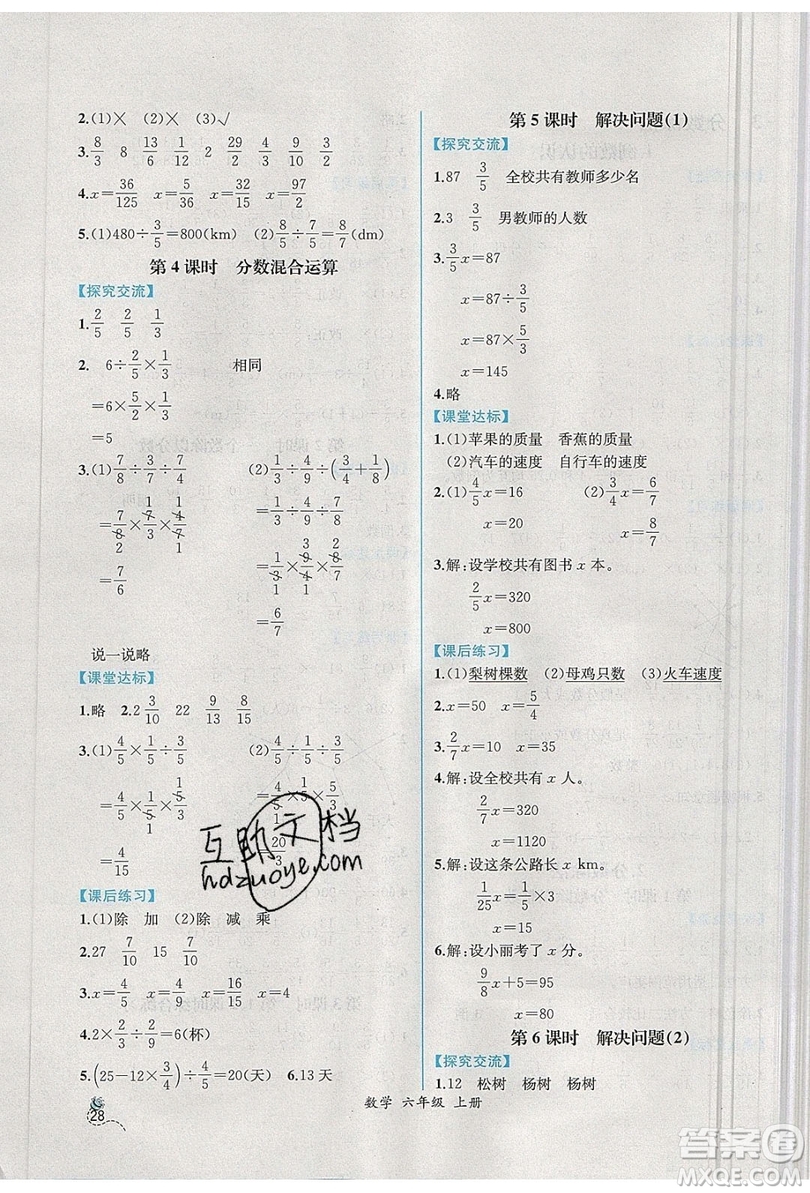 2.(1)× (2)× (3)√
3. 8/3 8/9 15/16 9/13 13/9 1/2 9/2
4. x=36/125 x=5/36 x=32/15 x=97/32
5.(1)480÷3/5=800(km) (2)8/7÷8/5÷8/7=7/8(dm)
第4课时 分数混合运算
【探究交流】
1. 2/5 2/5 1/3
2. 6÷2/5×1/3 相同
=6×5/2×1/3
=5
3.(1)7/8÷3/7÷7/4 (2)1/3÷4/9÷(3/4+1/8)
=7/8×7/3×4/7 =1/3×9/4×8/7
=7/6 =6/7
说一说略
【课堂达标】
1.略 2.2 3/10 22 9/13 8/15
3.(1)4/5×1/5÷3/5 (2)4/5÷1/5÷3/5
=4/5×1/5×5/3 =4/5×5×5/3
=4/15 =20/3
【课后练习】
1.(1)除 加 (2)除 减 乘
2.27 7/10 15 7/10
3. x=4/5 x=4/15 x=16/15 x=4/15
4.2×2/3÷2/9=6(杯)
5.(25-12×3/4)÷4/5=20(天) 6.13天
28
第5课时 解决问题(1)
【探究交流】
1.87 3/5 全校共有教师多少名
2.3 3/5 男教师的人数
3. 3/5 x=87
x=87÷3/5
x=87×5/3
x=145
4.略
【课堂达标】
1.(1)苹果的质量 香蕉的质量
(2)汽车的速度 自行车的速度
2.(1)4/5 x=16 (2)3/4 x=6/7
x=20 x=8/7
3.解:设学校共有图书 x 本。
2/5 x=320
x=800
【课后练习】
1.(1)梨树棵数 (2)母鸡只数 (3)火车速度
2. x=50 x=5/4
3. 2/7 x=10 x=35
4.解:设全校共有 x 人。
2/7 x=320
x=1120
5.解:设这条公路长 x km。
1/25 x=1/5×3
x=15
6.解:设小丽考了 x 分。
9/8 x+5=95
x=80
第6课时 解决问题(2)
【探究交流】
1.12 松树 杨树 杨树
数学 六年级 上册
互助文档
hdzuoye.com
答案圈
MXQE.COM